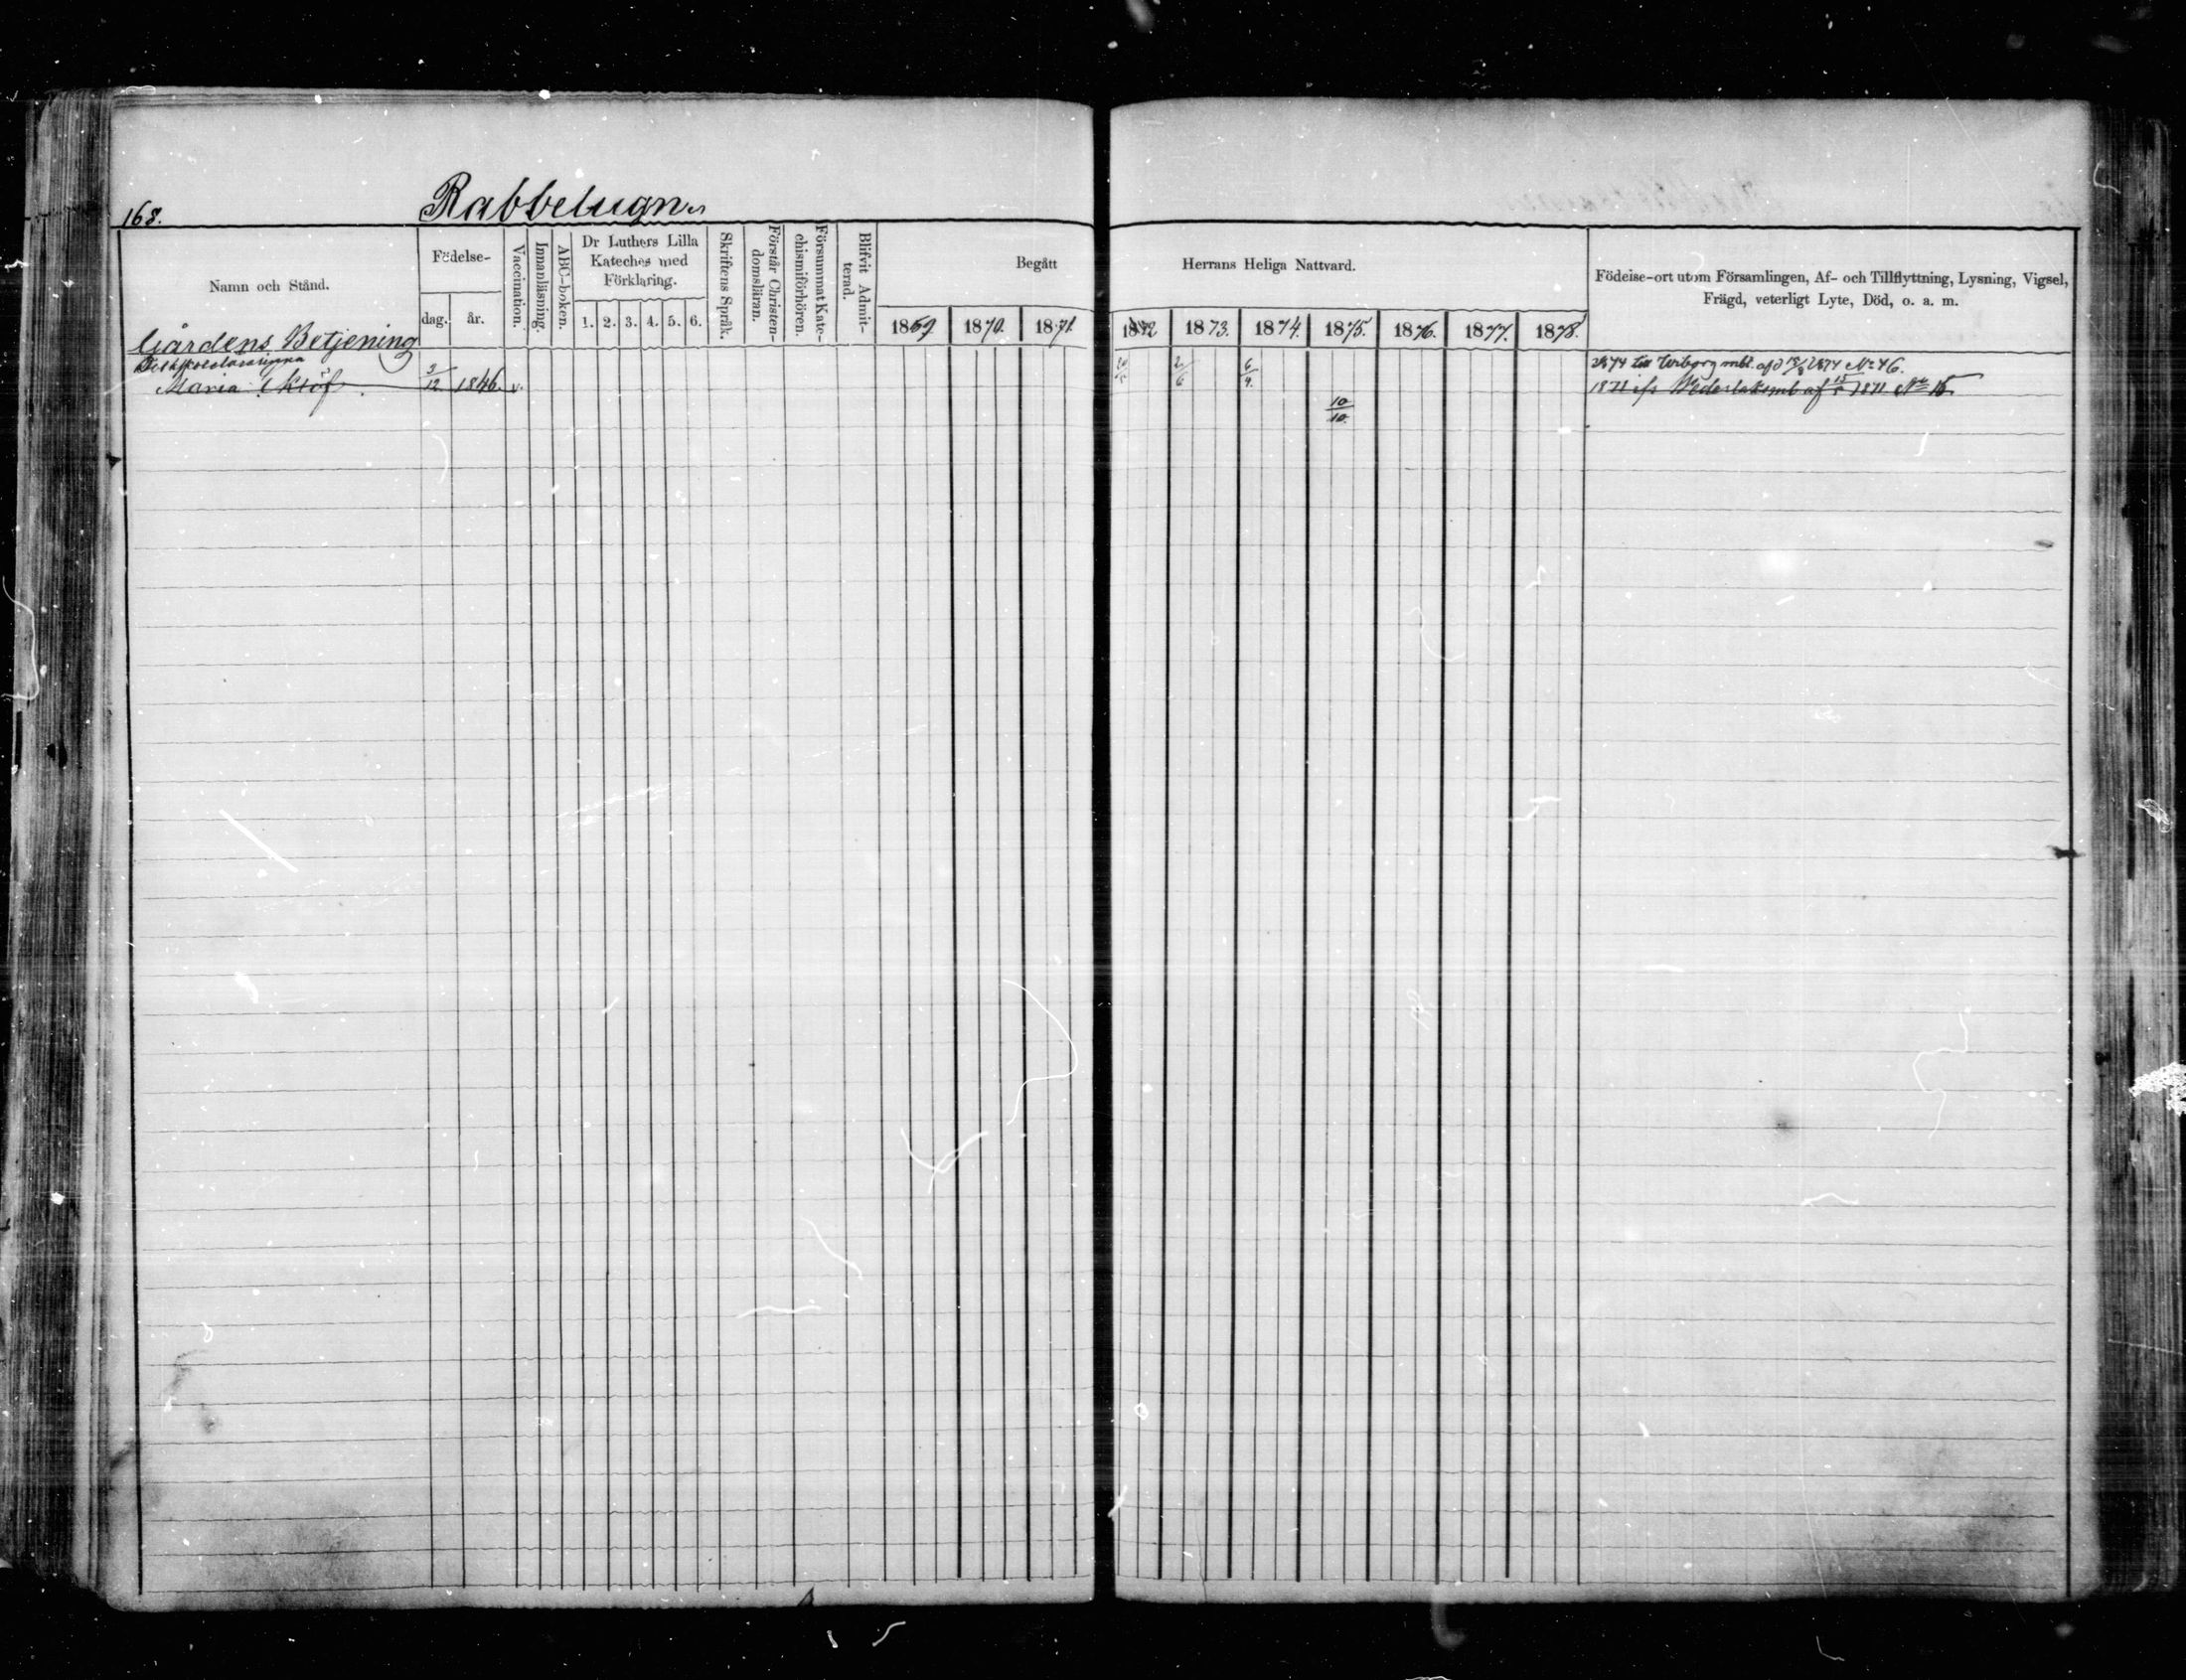 168.
Rabbelugn
Namn och Stånd.
Födelse-
dag.
år.
Vaccination.
Innanläsning.
ABC-boken.
Dr Luthers Lilla
Kateches med
Förklaring.
1. 2. 3. 4. 5. 6.
Skriftens Språk.
Förstår Christen-
domsläran.
Försummat Kate-
chismiförhören.
Blifvit Admit-
terad.
Begått
Herrans Heliga Nattvard.
1869 1870. 1871. 1872 1873. 1874. 1875. 1876. 1877. 1878.
Födelse-ort utom Församlingen, Af- och Tillflyttning, Lysning, Vigsel,
Frägd, veterligt Lyte, Död, o. a. m.
Gårdens Betjening
Maria 3/12 1846. v. 2/6 6/9.
1874 till Wiborg mbt. af 1874 No 46.
1871 ifr Wederlaks mb af 1871 No 15
10/10.